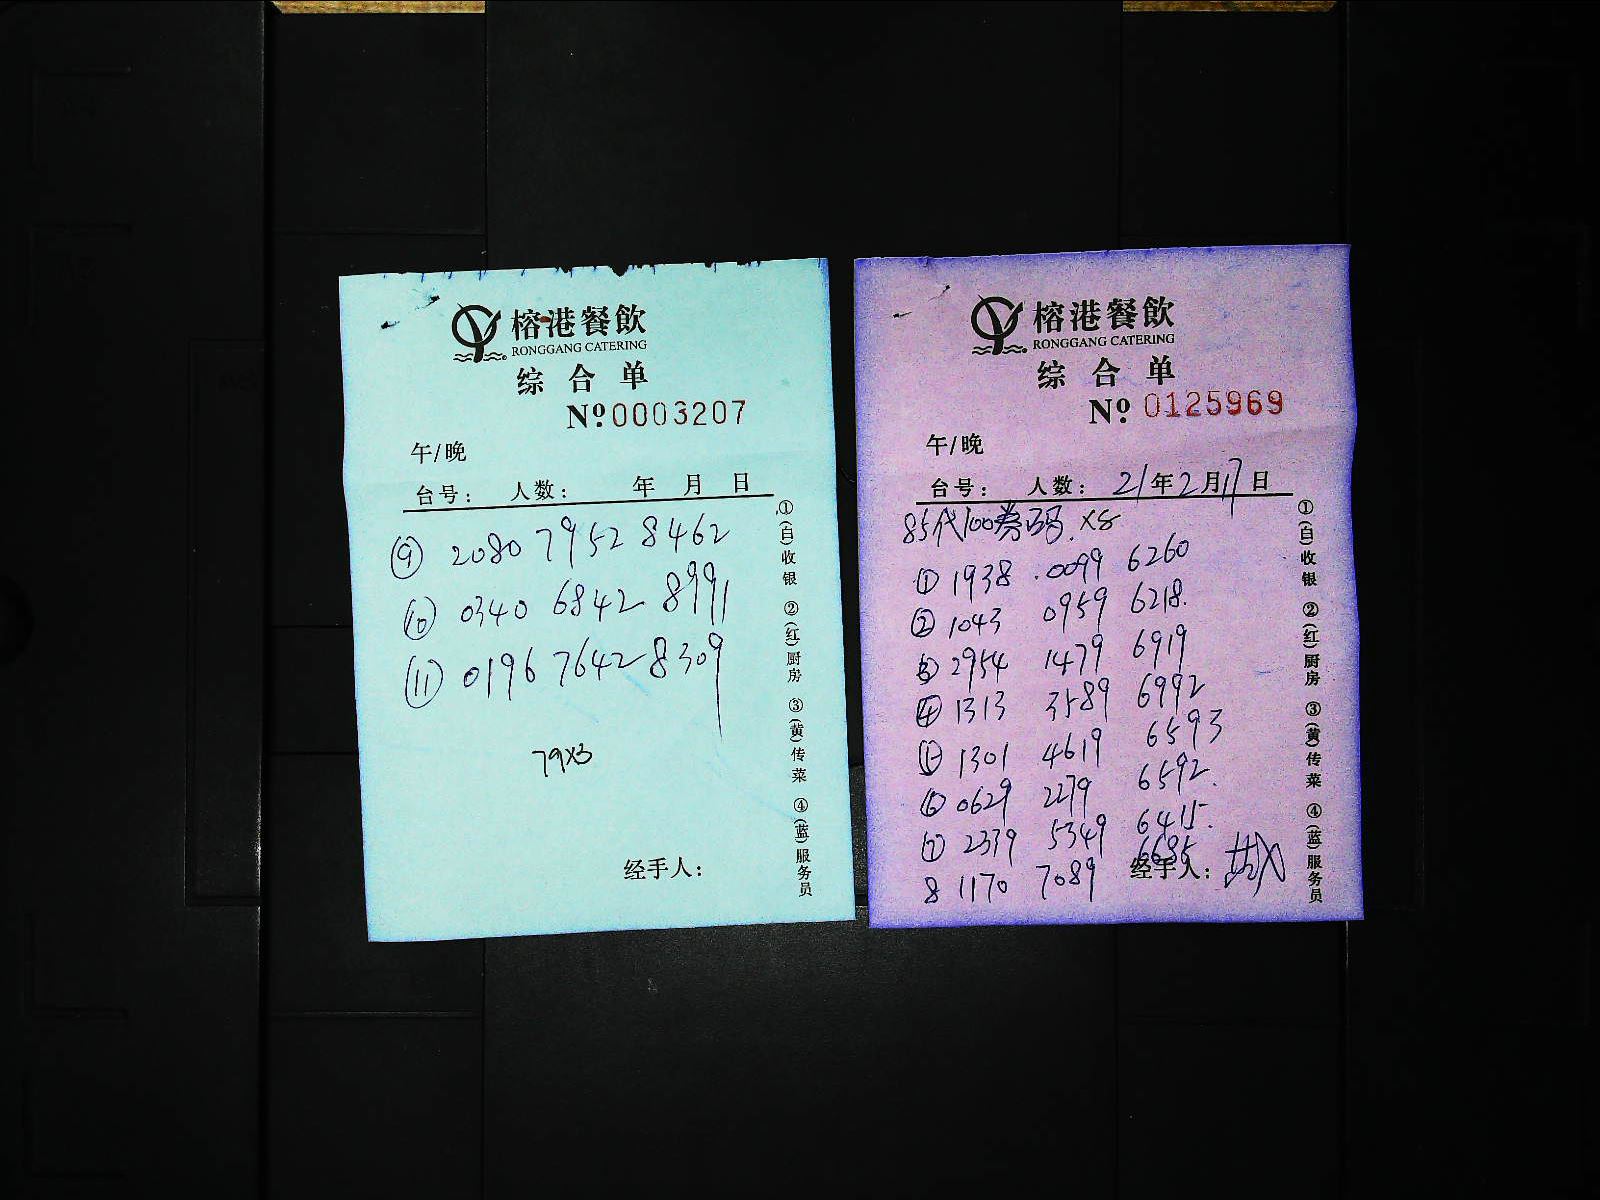 榕港餐飲
RONGGANG CATERING
综合单
Nº 0003207
午/晚
台号： 人数： 年 月 日
⑨ 2080 7952 8462
⑩ 0340 6842 8991
⑪ 0196 7642 8309
79X3
经手人：
①(白)收银 ②(红)厨房 ③(黄)传菜 ④(蓝)服务员
榕港餐飲
RONGGANG CATERING
综合单
Nº 0125969
午/晚
台号： 人数： 21年2月17日
85代100券码.X8
① 1938 .0099 6260
② 1043 0959 6218.
③ 2954 1479 6919
④ 1313 3589 6992
⑤ 1301 4619 6593
⑥ 0629 2279 6592.
⑦ 2339 5349 6415.
8 1170 7089 6685
经手人：
①(白)收银 ②(红)厨房 ③(黄)传菜 ④(蓝)服务员